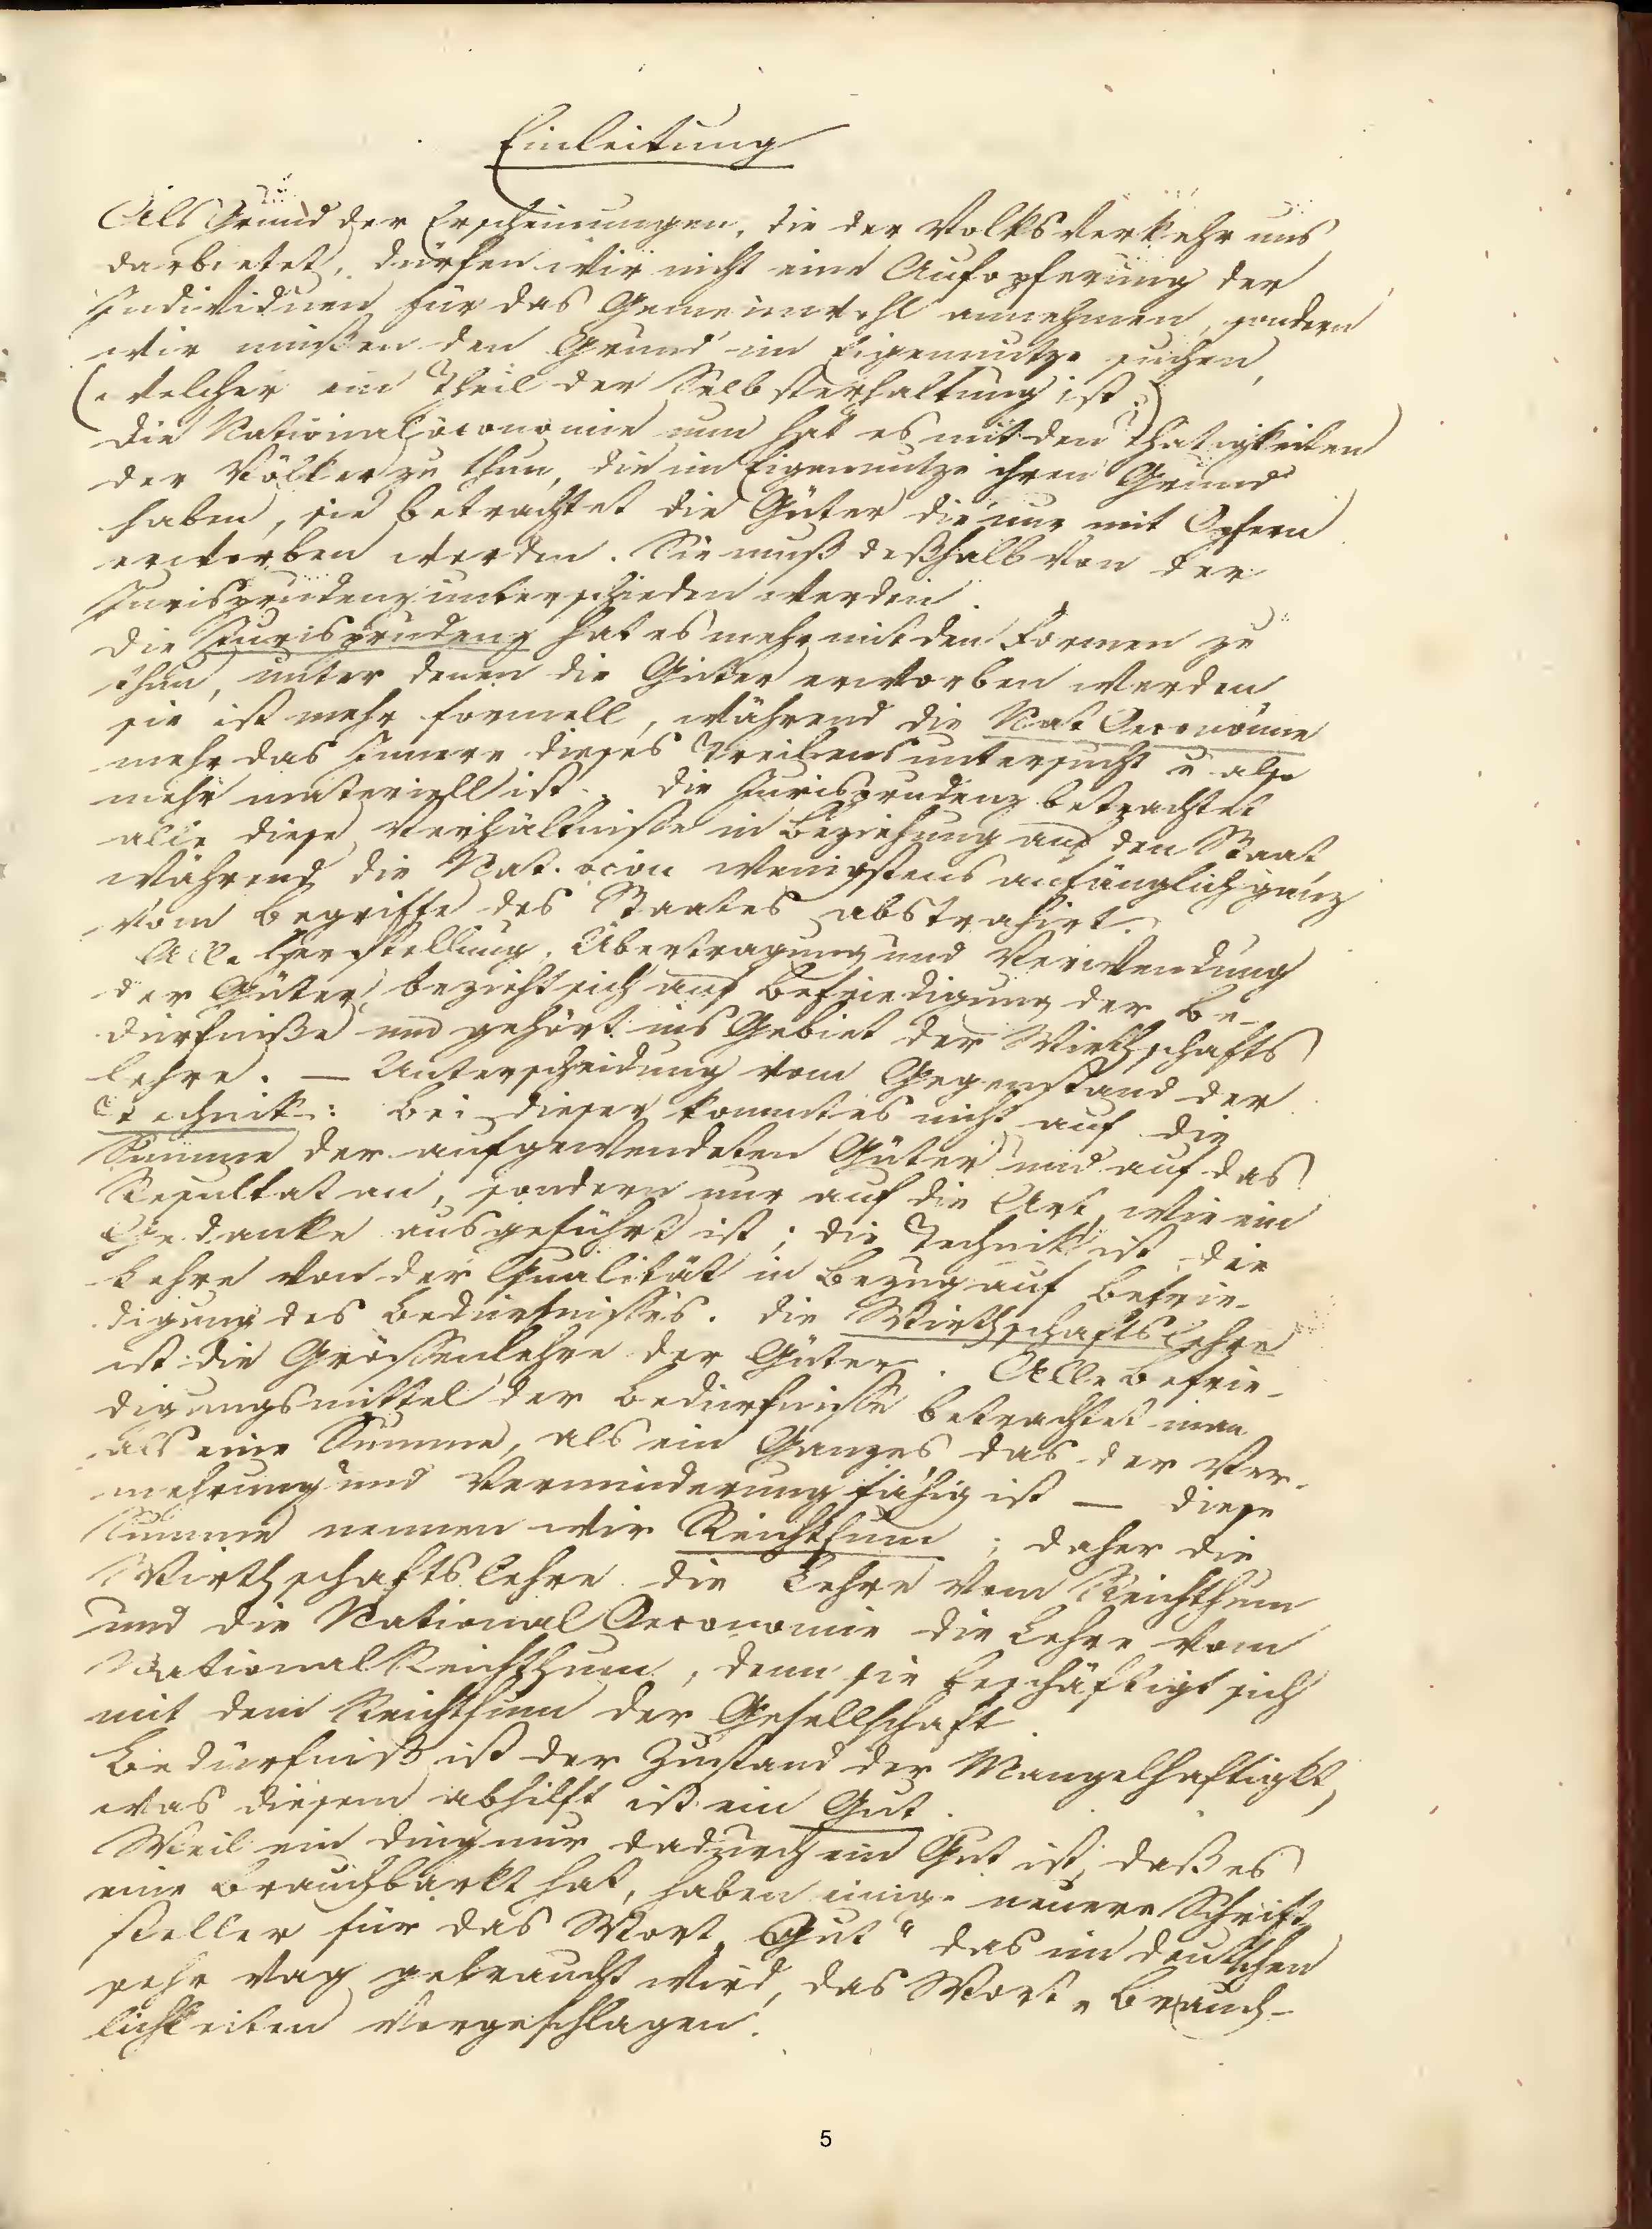 Einleitung
Als Grund der Erscheinungen, die der Volksverkehr uns
darbietet, dürfen wir nicht eine Aufopferung der
Individuen für das Gemeinwohl annehmen, sondern
wir müßen den Grund im Eigennutze suchen,
(welcher ein Theil der Selbsterhaltung ist.)
Die Nationalöconomie nun hat es mit den Thätigkeiten
der Völker zu thun, die im Eigennutze ihren Grund
haben, sie betrachtet die Güter die nur mit Opfern
erworben werden. Sie muß deßhalb von der
Jurisprudenz unterschieden werden.
Die Jurisprudenz hat es mehr mit den Formen zu
thun, unter denen die Güter erworben werden
sie ist mehr formell, während die Nat Oeconomie
mehr das Innere dieses Treibens untersucht u. also
mehr materiell ist. Die Jurisprudenz betrachtet
alle diese Verhältnisse in Beziehung auf den Staat
während die Nat. öcon wenigstens anfänglich ganz
vom Begriffe des Staates abstrahirt.
Alle Herstellung, Übertragung und Verwendung
der Güter bezieht sich auf Befriedigung der Be-
dürfniße und gehört ins Gebiet der Wirthschafts
lehre. — Unterscheidung vom Gegenstand der
Technik: Bei dieser kommt es nicht auf die
Summe der aufgewendeten Güter und auf das
Resultat an, sondern nur auf die Art, wie ein
Gedanke ausgeführt ist; die Technik ist die
Lehre von der Qualität in Bezug auf Befrie-
digung des Bedürfnisses. Die Wirthschaftslehre
ist die Grössenlehre der Güter. Alle Befrie-
digungsmittel der Bedürfnisse betrachtet man
als eine Summe, als ein Ganzes das der Ver-
mehrung und Verminderung fähig ist — diese
Summe nennen wir Reichthum; daher die
Wirthschaftslehre die Lehre vom Reichthum
und die National Oeconomie die Lehre vom
NationalReichthum, denn sie beschäftigt sich
mit dem Reichthum der Gesellschaft.
Bedürfniß ist der Zustand der Mangelhaftigkt,
was diesem abhilft ist ein Gut.
Weil ein Ding nur dadurch ein Gut ist, daß es
eine Brauchbarkt hat, haben einige neuere Schrift
steller für das Wort „Gut" das im deutschen
sehr vag gebraucht wird, das Wort „Brauch-
lichkeiten vorgeschlagen.
5